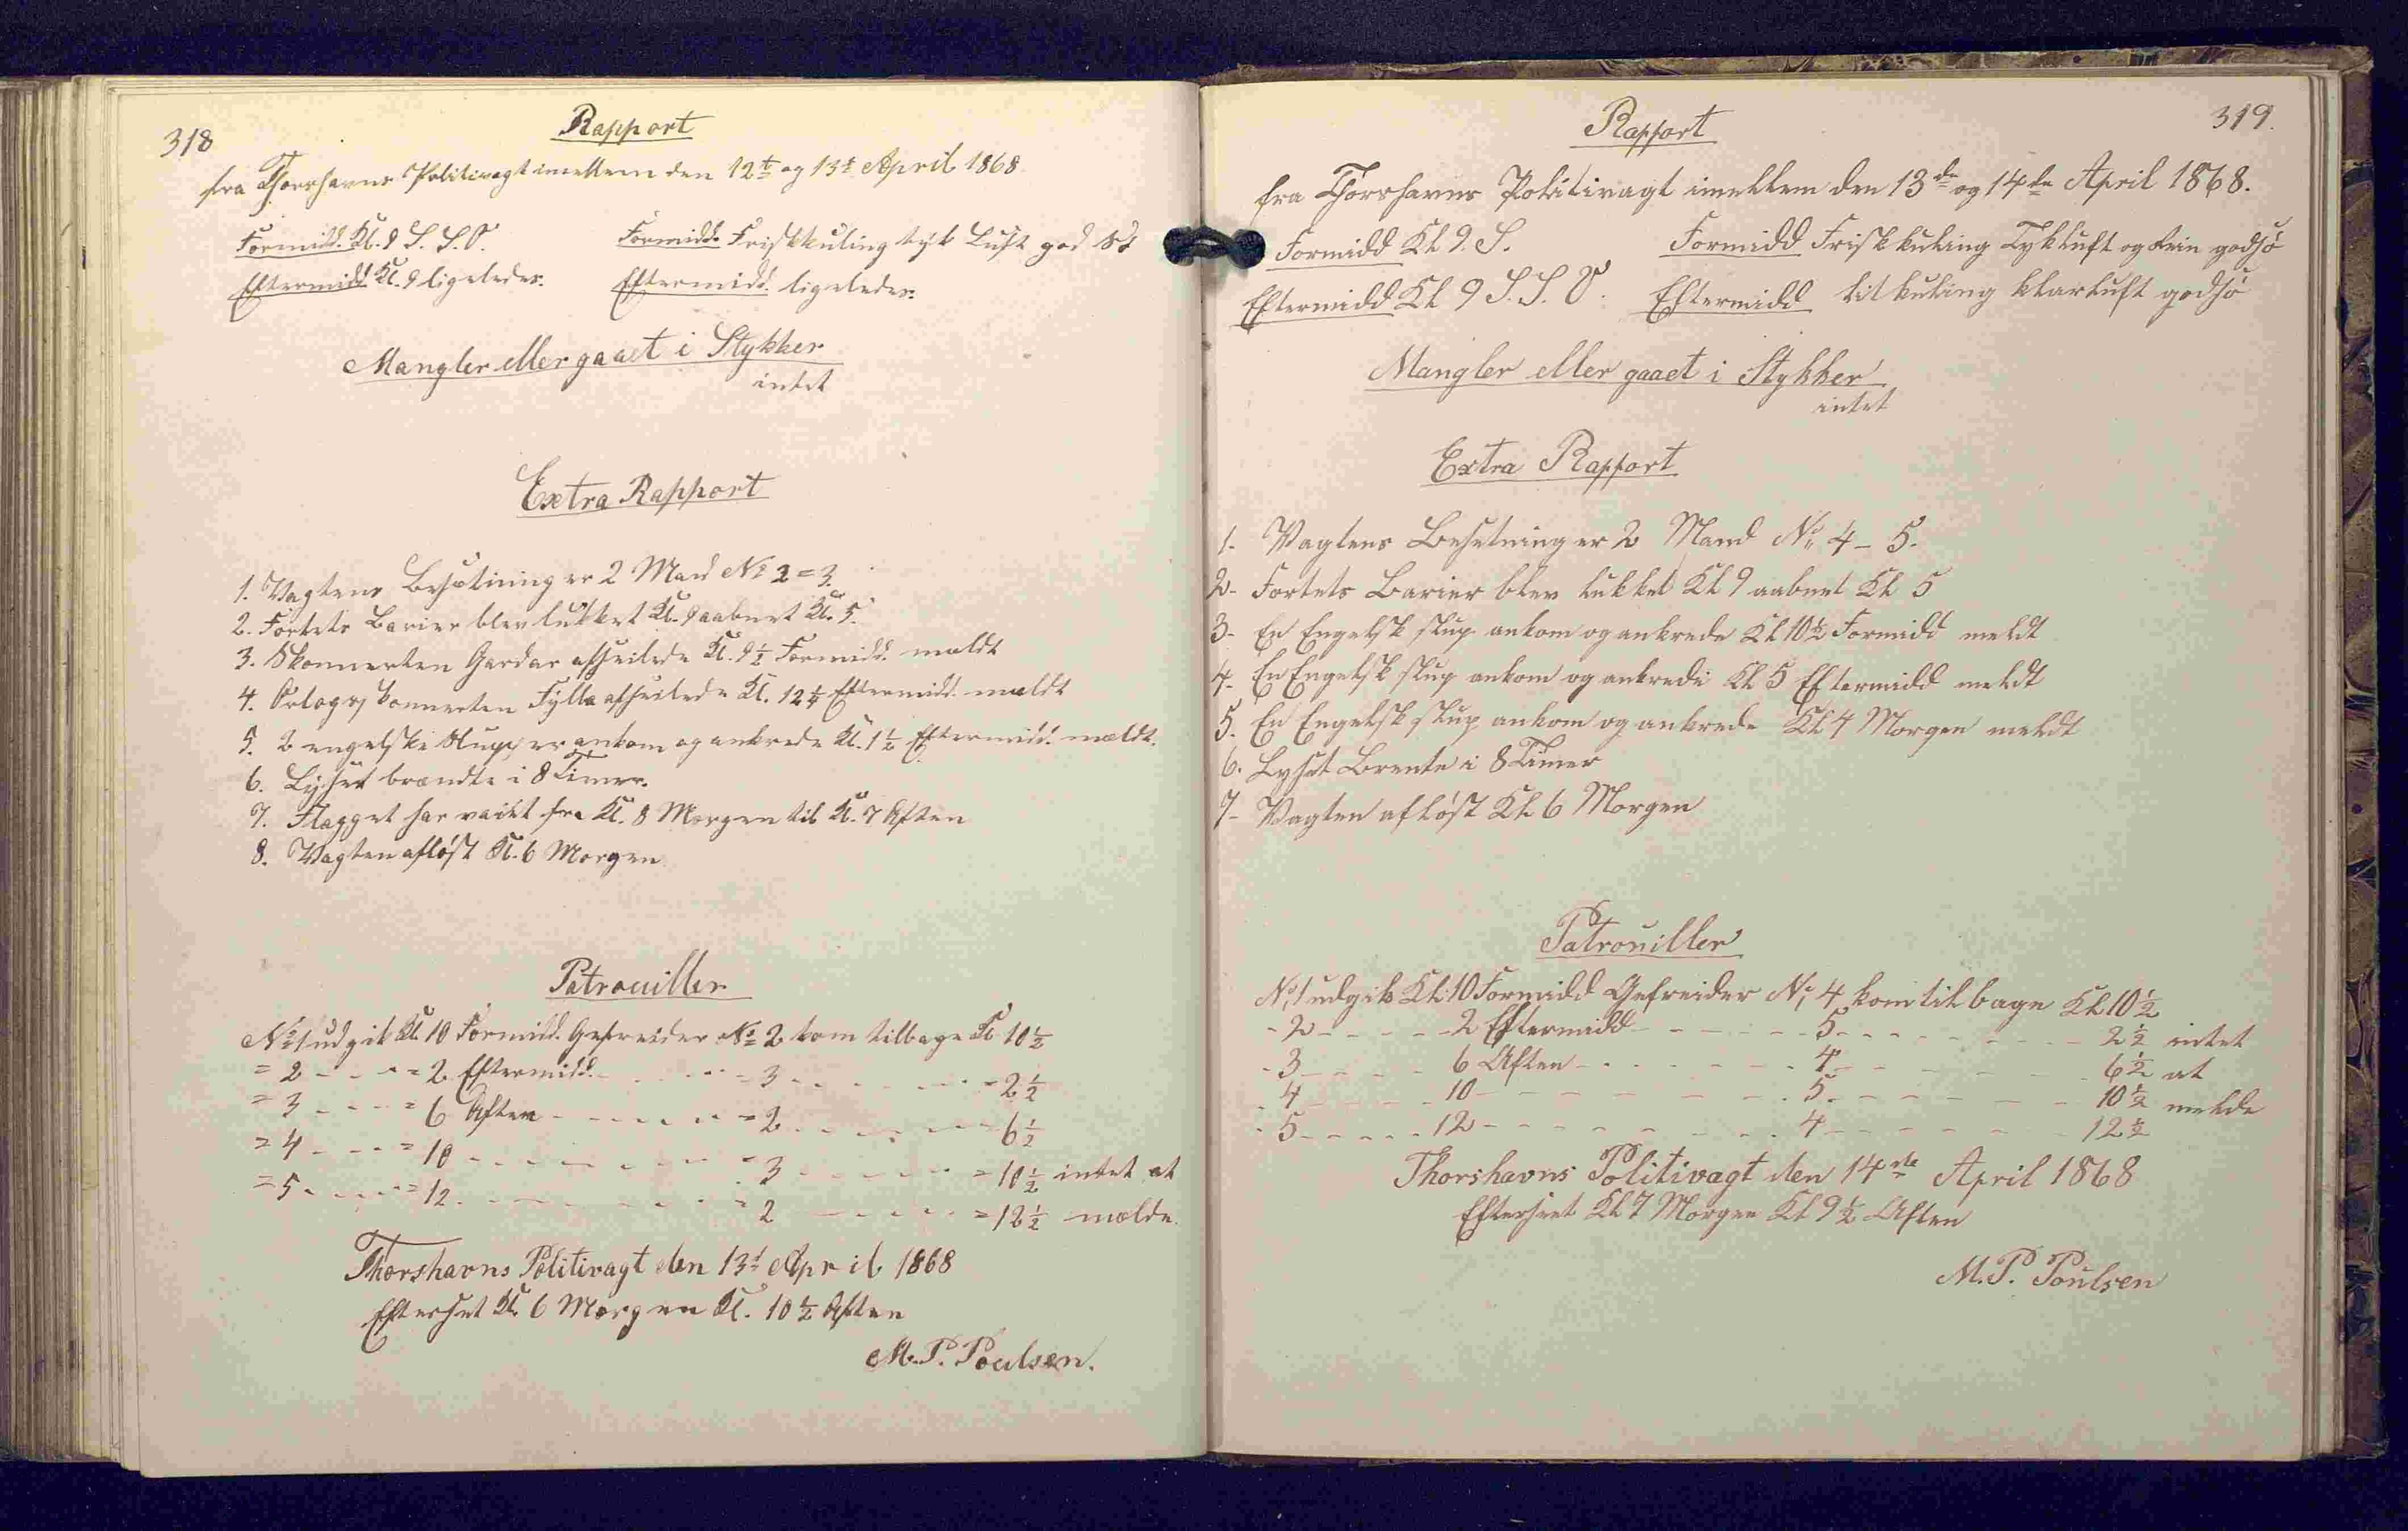 318
Rapport
fra Thorshavns Politivagt imellem den 12t og 13t April 1868.
Formidd. Kl. 9 S. S. O. Formidd. Friskkuling tyk Luft god Sö
Eftermidd. Kl. 9 ligeledes. Eftermidd. ligeledes.
Mangler eller gaaet i Stykker
intet
Extra Rapport
1. Vagtens Besætning er 2 Mand No 2 = 3.
2. Fortets Barier blev lukket Kl. 9 aabnet Kl. 5.
3. Skonnerten Gardar afseilede Kl. 9½ Formidd. meldt
4. Orlogsskonnerten Fylla afseilede Kl. 12¼ Eftermidd. meldt
5. 2 engelske Slupper ankom og ankrede Kl. 1½ Eftermidd. meldt.
6. Lyset brændte i 8 Timer.
7. Flagget har vaiet fra Kl. 8 Morgen til Kl. 7 Aften
8. Vagten aflöst Kl. 6 Morgen
Patrouiller
No 1 udgik Kl. 10 Formidd. Gefreider No 2 kom tilbage Kl 10½
= 2 - - - = 2 Eftermidd. - - - - 3 - - - - = 2½
= 3 - - - = 6 Aften - - - - = 2 - - - - = 6½
= 4 - - - = 10 - - - - = 3 - - - - = 10½ intet at
= 5 - - - = 12 - - - - = 2 - - - - = 12½ melde.
Thorshavns Politivagt den 13t April 1868
Efterset Kl. 6 Morgen Kl. 10½ Aften
M. P. Poulsen.
319.
Rapport
fra Thorshavns Politivagt imellem den 13de og 14de April 1868.
Formidd Kl 9. S. Formidd Friskkuling Tykluft og Rein godsö
Eftermidd Kl 9 S. S. O. Eftermidd litkuling klarluft godsö
Mangler eller gaaet i Stykker
intet
Extra Rapport
1- Vagtens Besetning er 2 Mand No 4 - 5.
2- Fortets Barier blev lukket Kl 9 aabnet Kl 5
3- En Engelsk slup ankom og ankrede Kl 10½ Formidd meldt
4. En Engelsk slup ankom og ankrede Kl 5 Eftermidd meldt
5. En Engelsk slup ankom og ankrede Kl 4 Morgen meldt
6. Lyset Brente i 8 Timer
7- Vagten aflöst Kl 6 Morgen
Patrouiller
No 1 udgik Kl 10 Formidd Gefreider No 4 kom tilbage Kl 10½
- 2 - - - - 2 Eftermidd - - - - 5 - - - - 2½ intet
- 3 - - - - 6 Aften - - - - 4 - - - - 6½ at
- 4 - - - - 10 - - - - 5 - - - - 10½ melde
- 5 - - - - 12 - - - - 4 - - - - 12½
Thorshavns Politivagt den 14de April 1868
Efterset Kl 7 Morgen Kl 9½ Aften
M. P. Poulsen